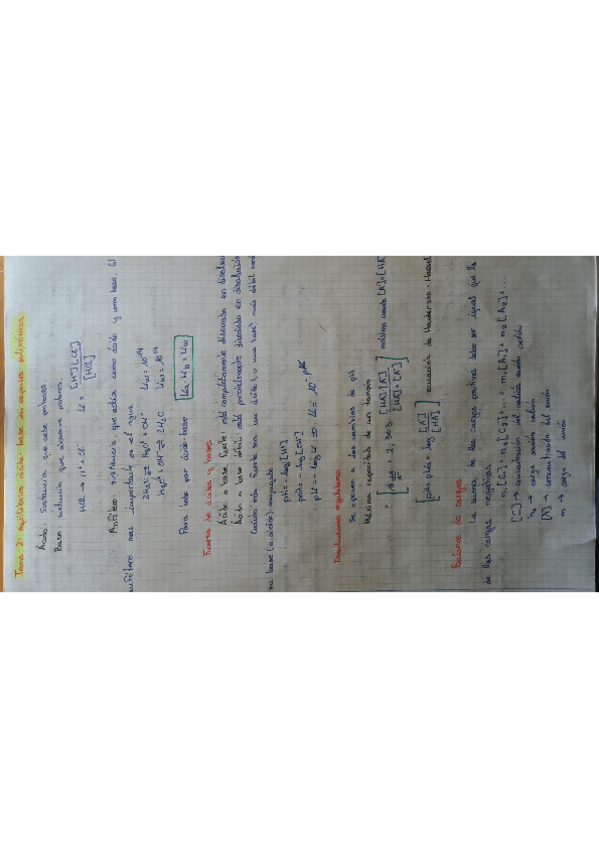 Tema 2: equilibrios ácido-base en especies polipróticas.
Ácido: sustancia que cede protones
Base: sustancia que acepta protones.
HCl → H⁺ + Cl⁻ K = [H⁺][Cl⁻] / [HCl]
Anfótero: sustancia que actúa como ácido y como base. El
anfótero más importante es el agua.
2H₂O ⇌ H₃O⁺ + OH⁻ Kw = 10⁻¹⁴
H₃O⁺ + OH⁻ ⇌ 2H₂O
Para todo par ácido-base Ka · Kb = Kw
Fuerza de ácidos y bases
Ácido o base fuerte: está completamente disociado en
Ácido o base débil: está parcialmente disociado en disolución
Cuánto más fuerte sea un ácido (o una base) más débil será
su base (o ácido) conjugado.
pH = -log [H⁺]
pOH = -log [OH⁻]
pK = -log K ⇒ K = 10^-pK
Disoluciones reguladoras
Se oponen a los cambios de pH
Máxima capacidad de un tampón
2,303 [HA][A⁻] / [HA]+[A⁻] máximo cuando [A⁻]=[HA]
[pH = pKa + log [A⁻]/[HA]] ecuación de Henderson-Hassel
Balance de cargas
La suma de las cargas positivas debe ser igual que la
de las cargas negativas
n₁[C₁] + n₂[C₂] + ... = m₁[A₁] + m₂[A₂] + ...
[C] → concentración del catión
n → carga catión
[A] → concentración del anión
m → carga del anión